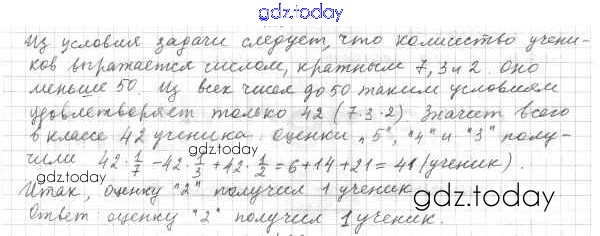 gdz.today
Из условия задачи следует, что количество учени-
ков выражается числом, кратным 7, 3 и 2. Оно
меньше 50. Из всех чисел до 50 таким условиям
удовлетворяет только 42 (7·3·2). Значит всего
в классе 42 ученика. Оценки „5", „4" и "3" полу-
gdz.today
чили 42·1/7-42·1/3+42·1/2=6+14+21=41 (ученик).
Итак, оценку "2" получил 1 ученик.
gdz.today
Ответ: оценку "2" получил 1 ученик.
gdz.today